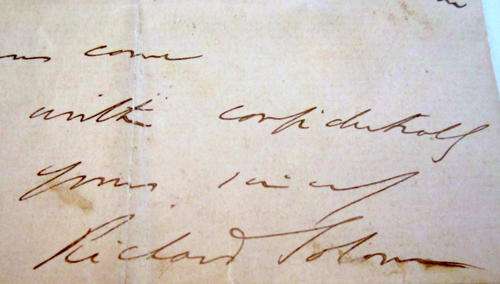 come
with confidentially
Yours sincerely
Richard Solomon